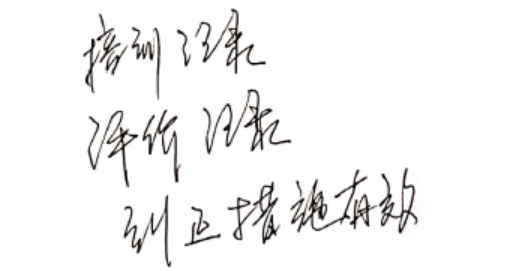 培训记录
评价记录
纠正措施有效